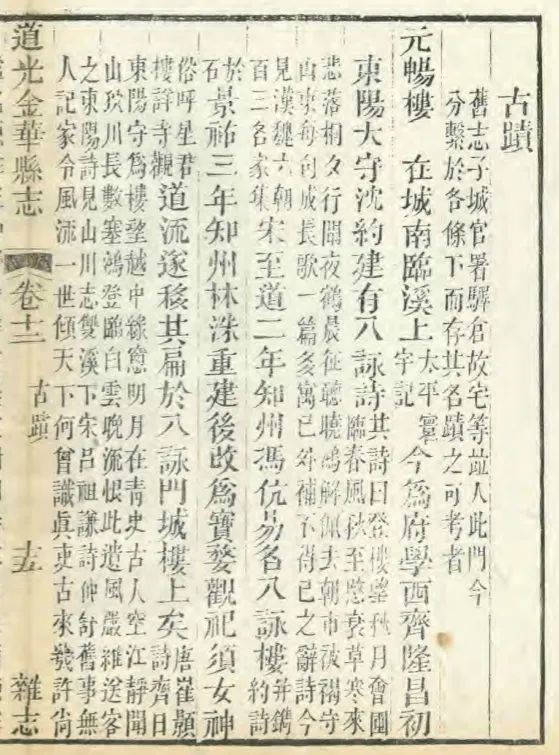 古蹟
舊志子城官署驛倉故宅等竝入此門今
分繫於各條下而存其名蹟之可考者
元暢樓 在城南臨溪上太平寰宇記今為府學西齊隆昌初
東陽大守沈約建有八詠詩其詩曰登樓望秋月會圃臨春風秋至愍衰草寒來
悲落桐夕行聞夜鶴晨征聽曉鴻解佩去朝市被褐守
山東每句成長歌一篇多寓已外補不得已之辭詩今
見漢魏六朝百三名家集宋至道二年知州馮伉易名八詠樓并鐫約詩
於石景祐三年知州林洙重建後改為寶婺觀祀須女神
俗呼星君樓詳寺觀道流遂移其扁於八詠門城樓上矣唐崔顥詩齊日
東陽守為樓望越中綠窻明月在青史古人空江靜聞
山狖川長數塞鴻登臨白雲晚流恨此遺風嚴維送客
之東陽詩見山川志雙溪下宋呂祖謙詩仲舒舊事無
人記家令風流一世傾天下何曾識真吏古來幾許尚
道光金華縣志 卷十二 古蹟 十五 雜志